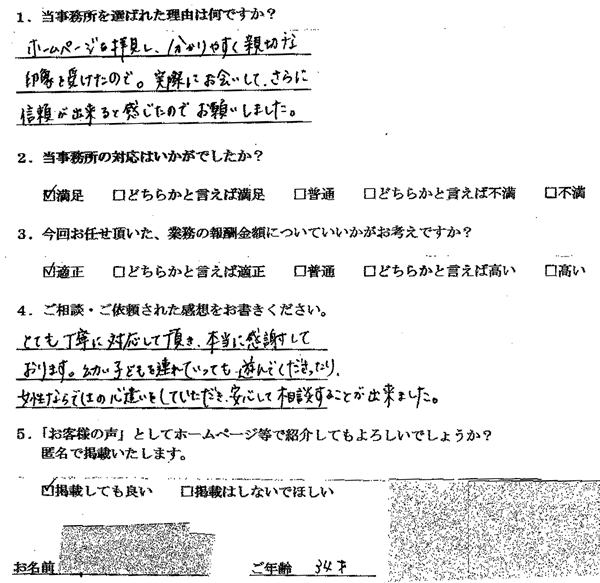 1．当事務所を選ばれた理由は何ですか？
ホームページを拝見し、分かりやすく親切な
印象を受けたので。実際にお会いして、さらに
信頼が出来ると感じたのでお願いしました。
2．当事務所の対応はいかがでしたか？
☑満足 □どちらかと言えば満足 □普通 □どちらかと言えば不満 □不満
3．今回お任せ頂いた、業務の報酬金額についていいかがお考えですか？
☑適正 □どちらかと言えば適正 □普通 □どちらかと言えば高い □高い
4．ご相談・ご依頼された感想をお書きください。
とても丁寧に対応して頂き、本当に感謝して
おります。幼い子どもを連れていっても、遊んでくださったり、
女性ならではの心遣いをしていただき、安心して相談することが出来ました。
5．「お客様の声」としてホームページ等で紹介してもよろしいでしょうか？
匿名で掲載いたします。
☑掲載しても良い □掲載はしないでほしい
お名前 ご年齢 34才